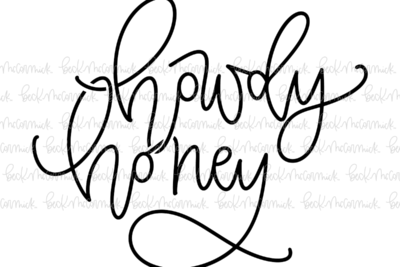 howdy
honey